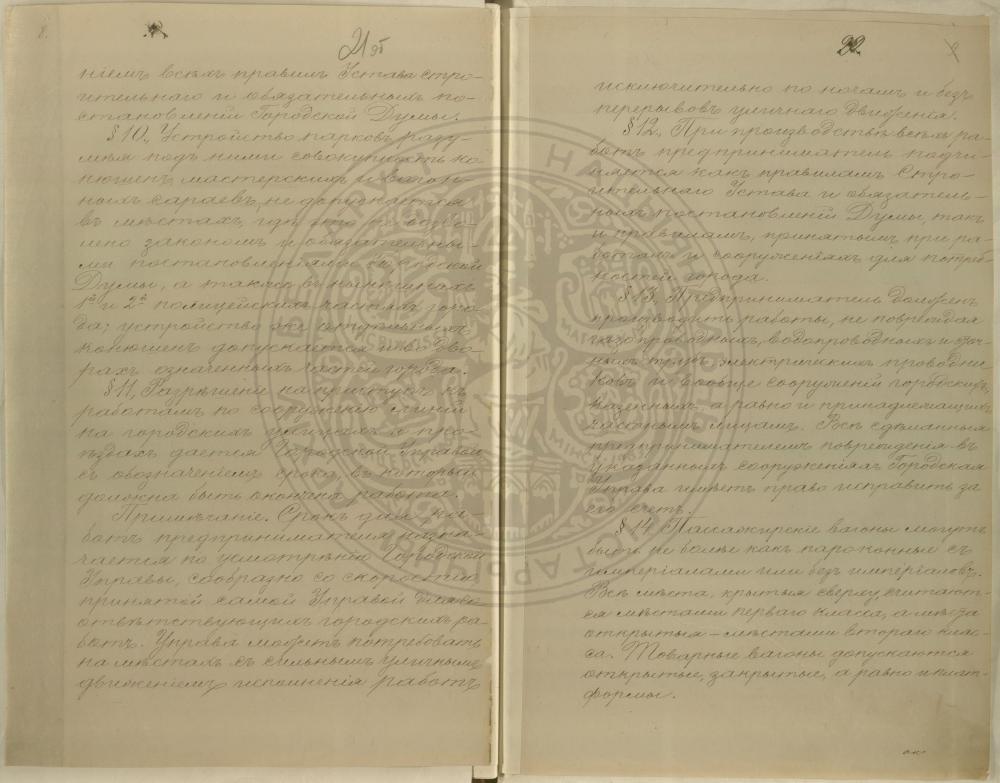 8.
21 об
ніемъ всѣхъ правилъ Устава стро-
ительнаго и обязательныхъ по-
становленій Городской Думы.
§ 10. Устройство парковъ, разу-
мѣя подъ ними совокупность ко-
нюшенъ, мастерскихъ и вагон-
ныхъ сараевъ, не допускается
въ мѣстахъ, гдѣ это не дозво-
лено закономъ и обязательны-
ми постановленіями Городской
Думы, а также въ
1й и 2й полицейскихъ частяхъ горо-
да; устройство же отдѣльныхъ
конюшенъ допускается и во дво-
рахъ означенныхъ частей города.
§ 11. Разрѣшеніе на приступъ къ
работамъ по сооруженію линій
на городскихъ улицахъ и про-
ѣздахъ дается Городской Управой
съ обозначеніемъ срока, въ который
должна быть окончена работа.
Примѣчаніе. Срокъ для ра-
ботъ предпринимателя назна-
чается по усмотрѣнію Городской
Управы, сообразно со скоростью,
принятой самой Управой для со-
отвѣтствующихъ городскихъ ра-
ботъ. Управа можетъ потребовать
на мѣстахъ съ сильнымъ уличнымъ
движеніемъ исполненія работъ
22.
исключительно по ночамъ и безъ
перерывовъ уличнаго движенія.
§ 12. При производствѣ всѣхъ ра-
ботъ предприниматель подчи-
няется какъ правиламъ Стро-
ительнаго Устава и обязатель-
нымъ постановленій Думы, такъ
и правиламъ, принятымъ при ра-
ботахъ и сооруженіяхъ для потреб-
ностей города.
§ 13. Предприниматель долженъ
производить работы, не повреждая
газопроводныхъ, водопроводныхъ и
трубъ, электрическихъ проводни-
ковъ и вообще сооруженій городскихъ,
казенныхъ, а равно и принадлежащихъ
частнымъ лицамъ. Всѣ сдѣланныя
предпринимателемъ поврежденія въ
указанныхъ сооруженіяхъ Городская
Управа имѣетъ право исправить за
его счетъ.
§ 14. Пассажирскіе вагоны могутъ
быть не болѣе какъ пароконные съ
имперіалами или безъ имперіаловъ.
Всѣ мѣста, крытыя сверху, считают-
ся мѣстами перваго класса, а мѣста
открытыя – мѣстами втораго клас-
са. Товарные вагоны допускаются
открытые, закрытые, а равно и плат-
формы.